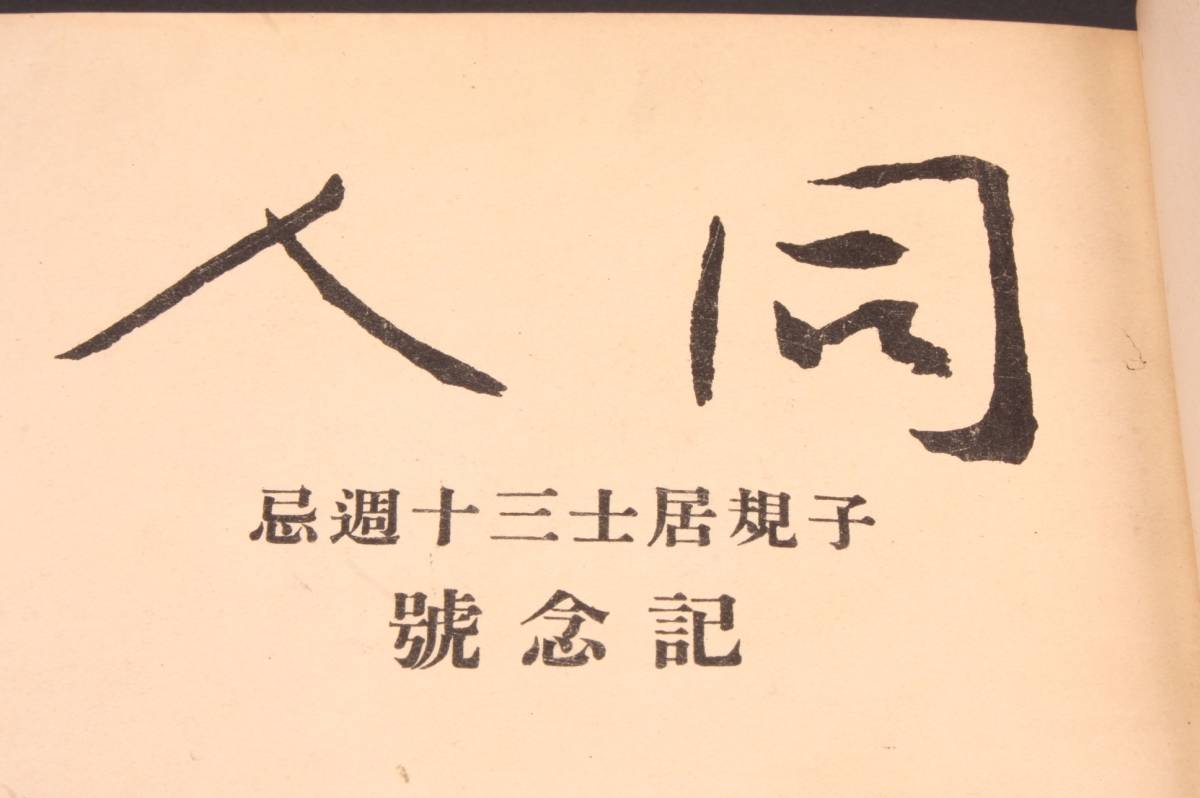 同人
子規居士三十週忌
記念號